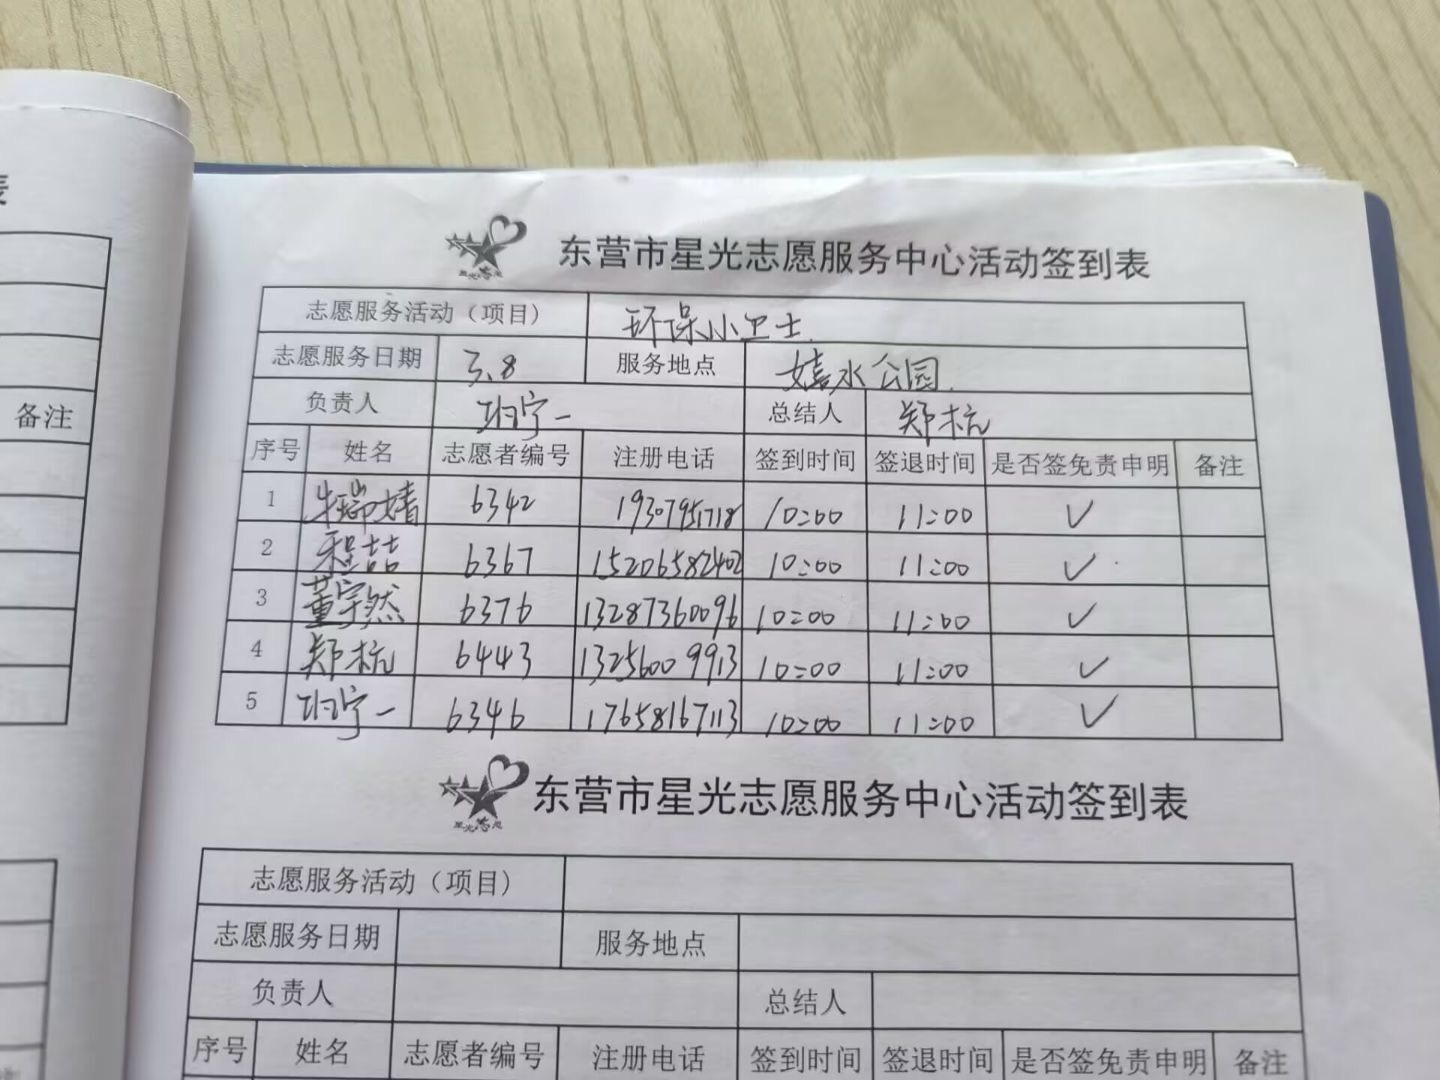 表
备注
东营市星光志愿服务中心活动签到表
志愿服务活动（项目） 环保小卫士
志愿服务日期 3.8 服务地点 嬉水公园
负责人 宁一 总结人 郑杭
序号 姓名 志愿者编号 注册电话 签到时间 签退时间 是否签免责申明 备注
1 牛瑞婧 6342 10:00 11:00 ✓
2 程喆 6367 15206582402 10:00 11:00 ✓
3 董宇然 6376 13287360096 10:00 11:00 ✓
4 郑杭 6443 13256009913 10:00 11:00 ✓
5 宁一 6346 17658167113 10:00 11:00 ✓
东营市星光志愿服务中心活动签到表
志愿服务活动（项目）
志愿服务日期 服务地点
负责人 总结人
序号 姓名 志愿者编号 注册电话 签到时间 签退时间 是否签免责申明 备注